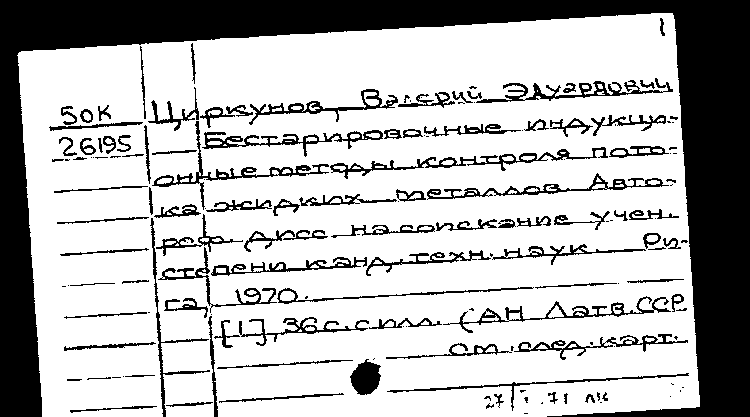 1
50К Циркунов, Валерий Эдуардович
26195 Бестарировочные индукци-
онные методы контроля пото-
ка жидких металлов. Авто-
реф. дисс. на соискание учен.
степени канд. техн. наук. Ри-
га, 1970.
[1], 36 с. с илл. (АН Латв. ССР
см. след. карт.
27/I.71 лк